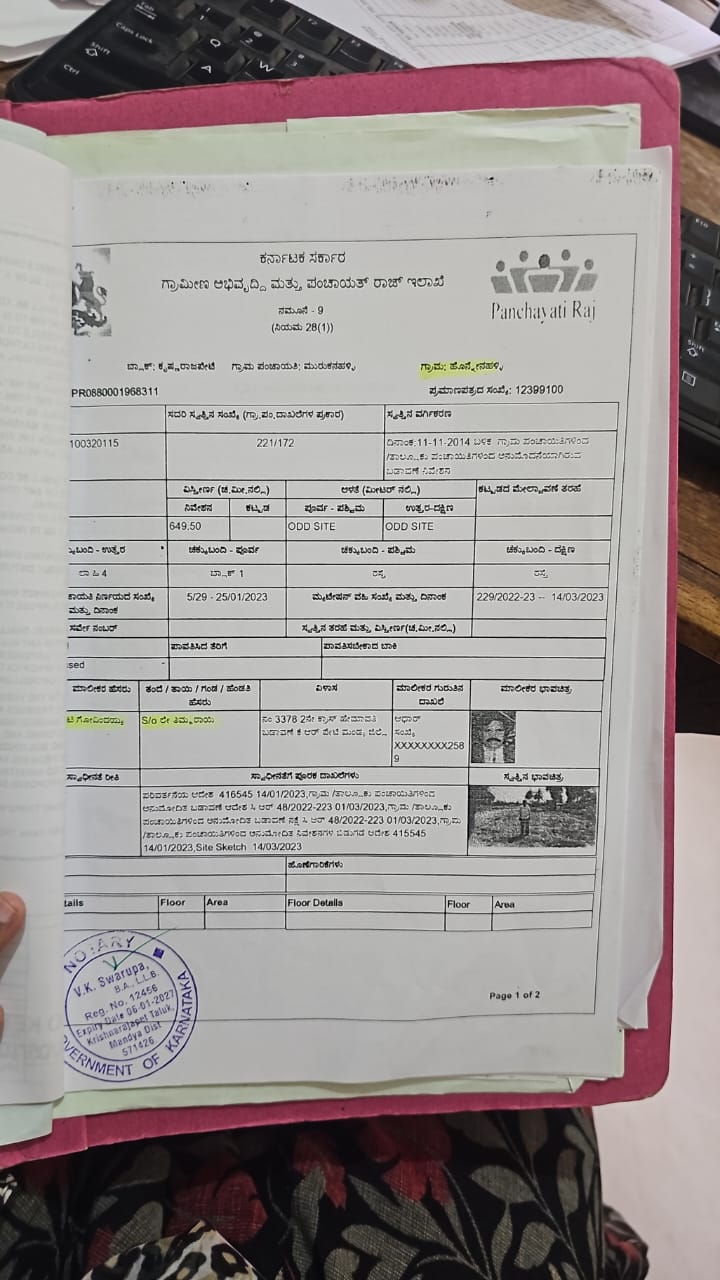 ಕರ್ನಾಟಕ ಸರ್ಕಾರ
ಗ್ರಾಮೀಣ ಅಭಿವೃದ್ಧಿ ಮತ್ತು ಪಂಚಾಯತ್ ರಾಜ್ ಇಲಾಖೆ
ನಮೂನೆ - 9
(ನಿಯಮ 28(1))
Panchayati Raj
ಬ್ಲಾಕ್: ಕೃಷ್ಣರಾಜಪೇಟೆ ಗ್ರಾಮ ಪಂಚಾಯತಿ: ಮುರುಕನಹಳ್ಳಿ ಗ್ರಾಮ: ಹೊನ್ನೇನಹಳ್ಳಿ
PR0880001968311 ಪ್ರಮಾಣಪತ್ರದ ಸಂಖ್ಯೆ: 12399100
ಸದರಿ ಸ್ವತ್ತಿನ ಸಂಖ್ಯೆ (ಗ್ರಾ.ಪಂ.ದಾಖಲೆಗಳ ಪ್ರಕಾರ) ಸ್ವತ್ತಿನ ವರ್ಗೀಕರಣ
100320115 221/172 ದಿನಾಂಕ:11-11-2014 ಬಳಿಕ ಗ್ರಾಮ ಪಂಚಾಯತಿಗಳಿಂದ
/ತಾಲ್ಲೂಕು ಪಂಚಾಯತಿಗಳಿಂದ ಅನುಮೋದನೆಯಾಗಿರುವ
ಬಡಾವಣೆ ನಿವೇಶನ
ವಿಸ್ತೀರ್ಣ (ಚ.ಮೀ.ನಲ್ಲಿ) ಅಳತೆ (ಮೀಟರ್ ನಲ್ಲಿ) ಕಟ್ಟಡದ ಮೇಲ್ಛಾವಣಿ ತರಹೆ
ನಿವೇಶನ ಕಟ್ಟಡ ಪೂರ್ವ - ಪಶ್ಚಿಮ ಉತ್ತರ-ದಕ್ಷಿಣ
649.50 ODD SITE ODD SITE
ಬಂದಿ - ಉತ್ತರ ಚೆಕ್ಕುಬಂದಿ - ಪೂರ್ವ ಚೆಕ್ಕುಬಂದಿ - ಪಶ್ಚಿಮ ಚೆಕ್ಕುಬಂದಿ - ದಕ್ಷಿಣ
4 ಬ್ಲಾಕ್ 1 ರಸ್ತೆ ರಸ್ತೆ
ಕಾಯತಿ ನಿರ್ಣಯದ ಸಂಖ್ಯೆ 5/29 - 25/01/2023 ಮ್ಯುಟೇಷನ್ ವಹಿ ಸಂಖ್ಯೆ ಮತ್ತು ದಿನಾಂಕ 229/2022-23 -- 14/03/2023
ಮತ್ತು ದಿನಾಂಕ
ಸರ್ವೇ ನಂಬರ್ ಸ್ವತ್ತಿನ ತರಹೆ ಮತ್ತು ವಿಸ್ತೀರ್ಣ(ಚ.ಮೀ.ನಲ್ಲಿ)
ಪಾವತಿಸಿದ ತೆರಿಗೆ ಪಾವತಿಸಬೇಕಾದ ಬಾಕಿ
sed
ಮಾಲೀಕರ ಹೆಸರು ತಂದೆ / ತಾಯಿ / ಗಂಡ / ಹೆಂಡತಿ ಹೆಸರು ವಿಳಾಸ ಮಾಲೀಕರ ಗುರುತಿನ ದಾಖಲೆ ಮಾಲೀಕರ ಭಾವಚಿತ್ರ
ಗೋವಿಂದಯ್ಯ S/o ಲೇ ತಿಮ್ಮರಾಯಿ ನಂ 3378 2ನೇ ಕ್ರಾಸ್ ಹೇಮಾವತಿ ಆಧಾರ್
ಬಡಾವಣೆ ಕೆ ಆರ್ ಪೇಟೆ ಮಂಡ್ಯ ಜಿಲ್ಲೆ ಸಂಖ್ಯೆ
XXXXXXXX258
9
ಸ್ವಾಧೀನತೆ ರೀತಿ ಸ್ವಾಧೀನತೆಗೆ ಪೂರಕ ದಾಖಲೆಗಳು ಸ್ವತ್ತಿನ ಭಾವಚಿತ್ರ
ಪರಿವರ್ತನೆಯ ಆದೇಶ 416545 14/01/2023,ಗ್ರಾಮ /ತಾಲ್ಲೂಕು ಪಂಚಾಯತಿಗಳಿಂದ
ಅನುಮೋದಿತ ಬಡಾವಣೆ ಆದೇಶ ಸಿ ಆರ್ 48/2022-223 01/03/2023,ಗ್ರಾಮ /ತಾಲ್ಲೂಕು
ಪಂಚಾಯತಿಗಳಿಂದ ಅನುಮೋದಿತ ಬಡಾವಣೆ ನಕ್ಷೆ ಸಿ ಆರ್ 48/2022-223 01/03/2023,ಗ್ರಾಮ
/ತಾಲ್ಲೂಕು ಪಂಚಾಯತಿಗಳಿಂದ ಅನುಮೋದಿತ ನಿವೇಶನಗಳ ಬಿಡುಗಡೆ ಆದೇಶ 415545
14/01/2023,Site Sketch 14/03/2023
ಹೊಣೆಗಾರಿಕೆಗಳು
tails Floor Area Floor Details Floor Area
NOTARY
V.K. Swarupa,
B.A., L.L.B.
Reg. No. 12456
Expiry Date 06-01-2027
Krishnarajapet Taluk,
Mandya Dist
571426.
VERNMENT OF KARNATAKA
Page 1 of 2
Caps Lock
Shift
Ctrl
Q
A
W